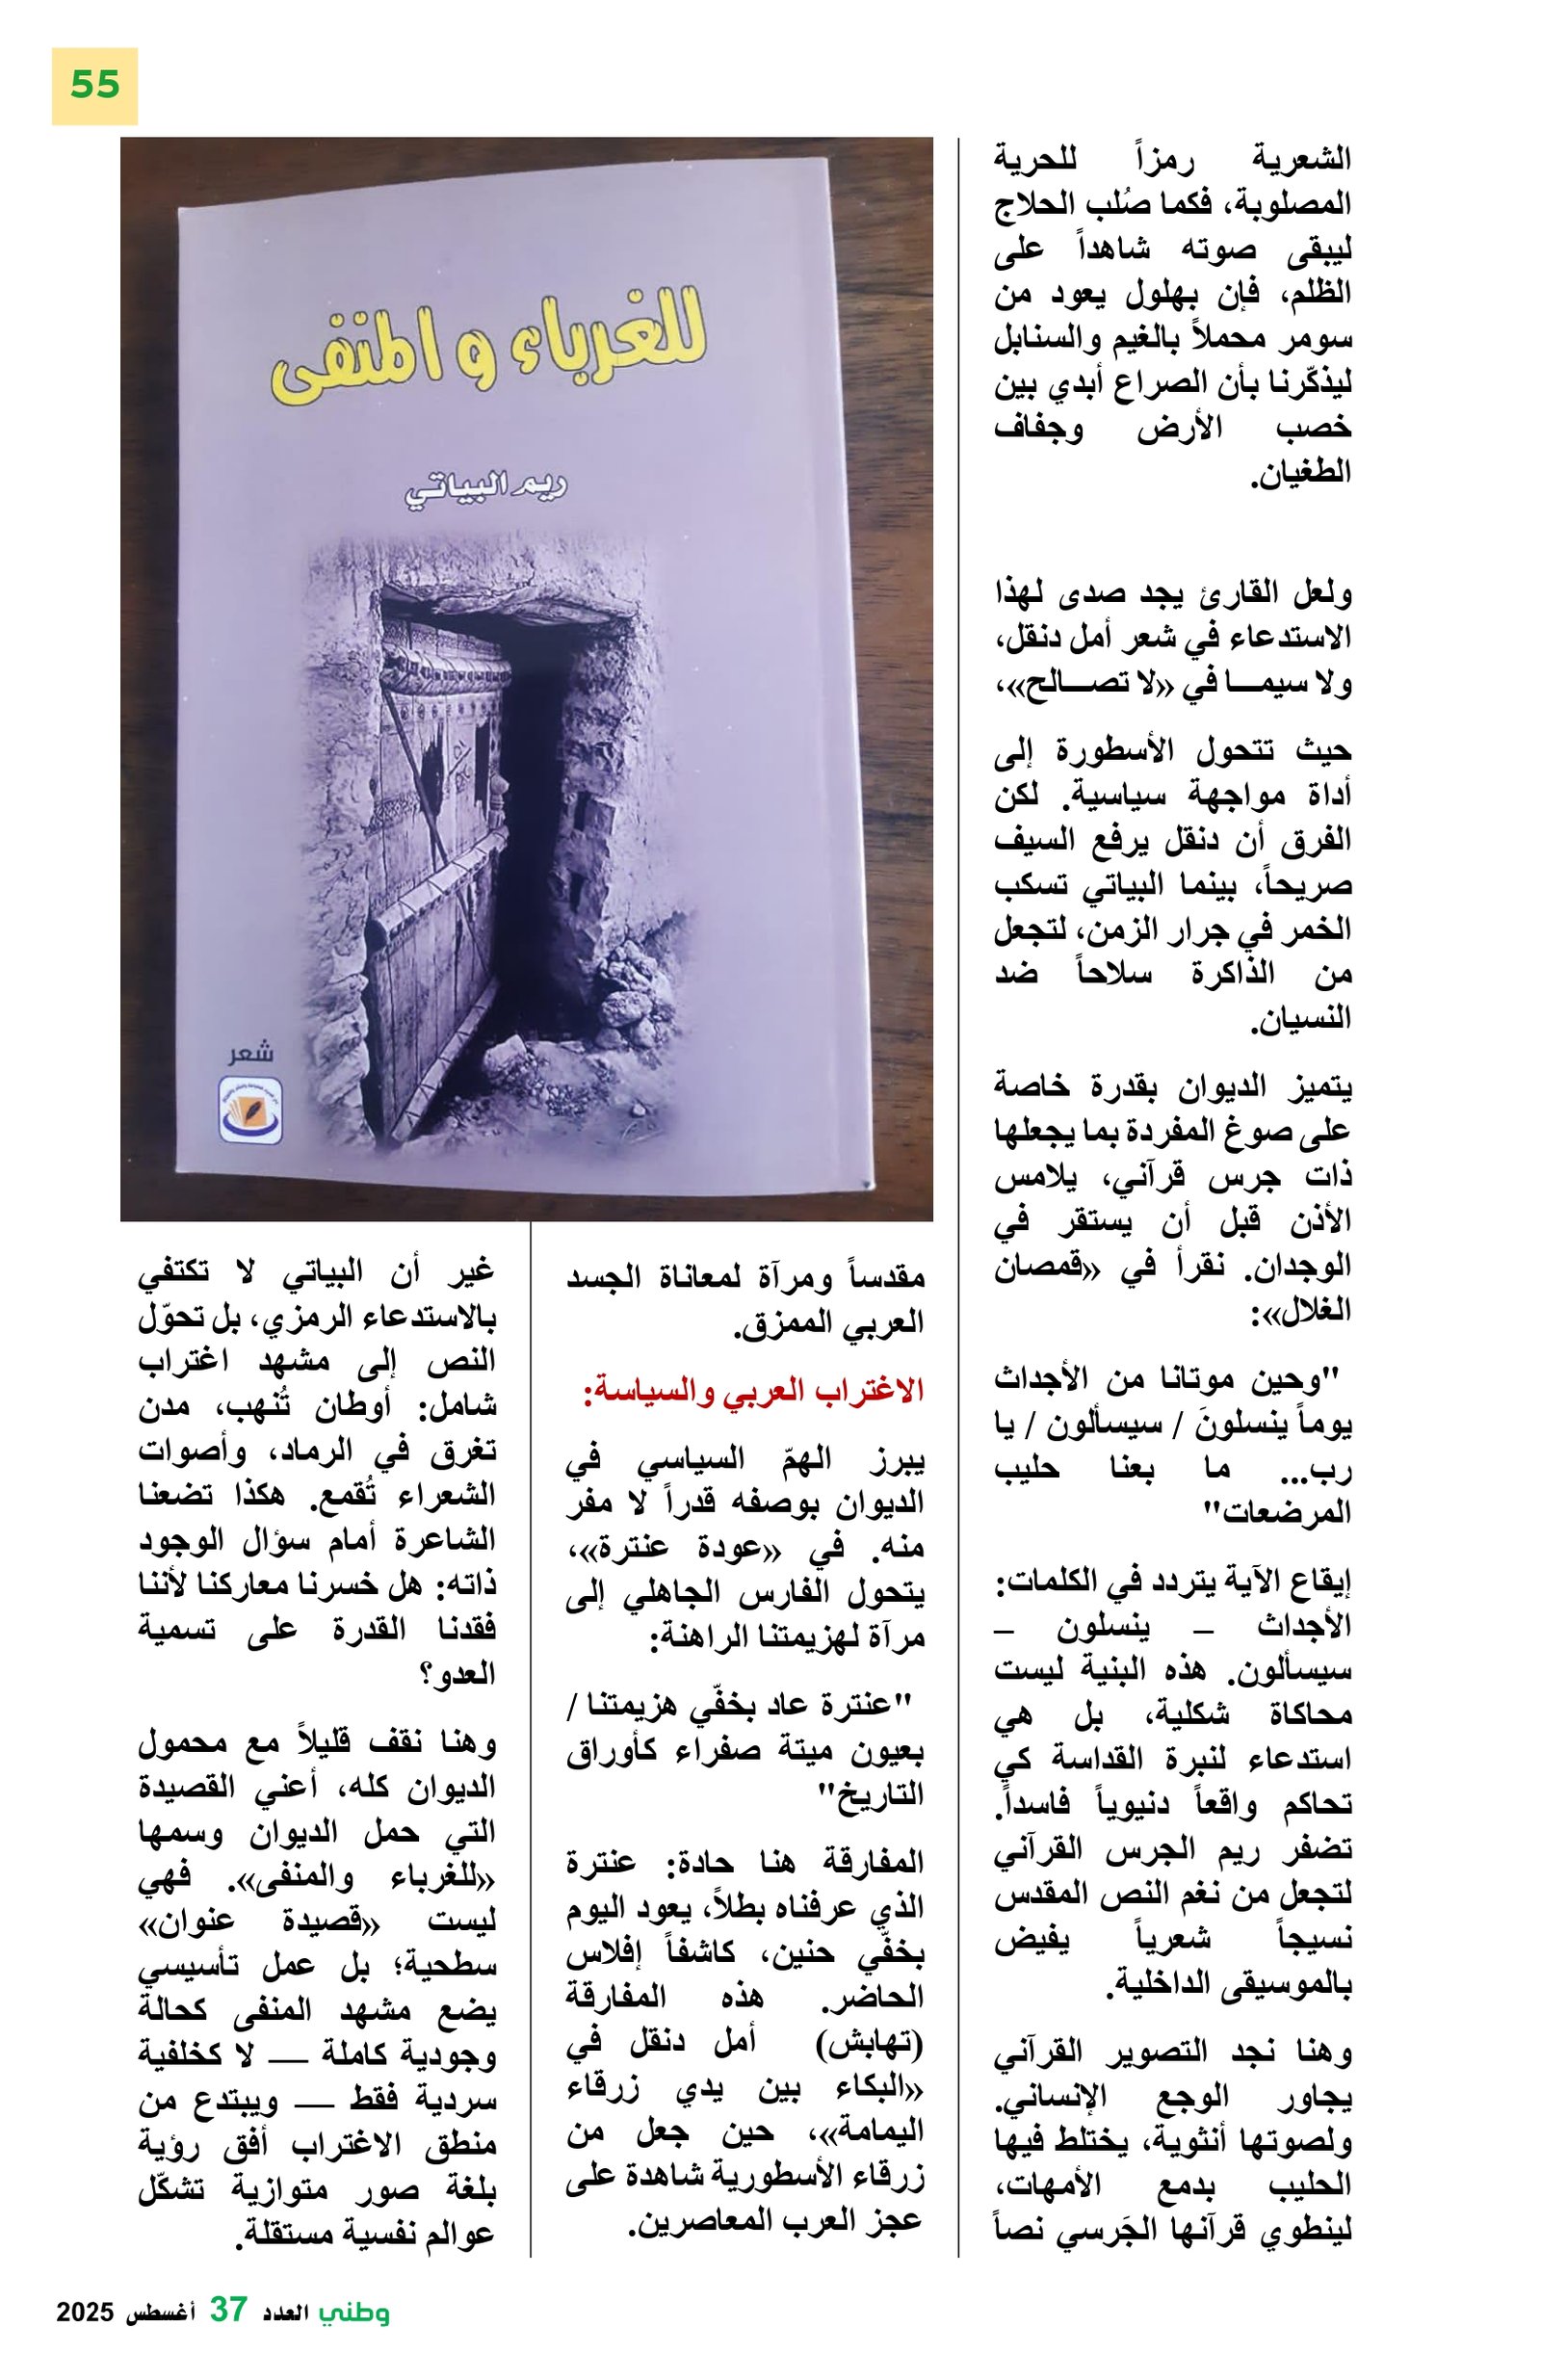 55
الشعرية رمزاً للحرية
المصلوبة، فكما صُلب الحلاج
ليبقى صوته شاهداً على
الظلم، فإن بهلول يعود من
سومر محملاً بالغيم والسنابل
ليذكّرنا بأن الصراع أبدي بين
خصب الأرض وجفاف
الطغيان.
ولعل القارئ يجد صدى لهذا
الاستدعاء في شعر أمل دنقل،
ولا سيمـــا في «لا تصـــالح»،
حيث تتحول الأسطورة إلى
أداة مواجهة سياسية. لكن
الفرق أن دنقل يرفع السيف
صريحاً، بينما البياتي تسكب
الخمر في جرار الزمن، لتجعل
من الذاكرة سلاحاً ضد
النسيان.
يتميز الديوان بقدرة خاصة
على صوغ المفردة بما يجعلها
ذات جرس قرآني، يلامس
الأذن قبل أن يستقر في
الوجدان. نقرأ في «قمصان
الغلال»:
"وحين موتانا من الأجداث
يوماً ينسلونَ / سيسألون / يا
رب... ما بعنا حليب
المرضعات"
إيقاع الآية يتردد في الكلمات:
الأجداث – ينسلون –
سيسألون. هذه البنية ليست
محاكاة شكلية، بل هي
استدعاء لنبرة القداسة كي
تحاكم واقعاً دنيوياً فاسداً.
تضفر ريم الجرس القرآني
لتجعل من نغم النص المقدس
نسيجاً شعرياً يفيض
بالموسيقى الداخلية.
وهنا نجد التصوير القرآني
يجاور الوجع الإنساني.
ولصوتها أنثوية، يختلط فيها
الحليب بدمع الأمهات،
لينطوي قرآنها الجَرسي نصاً
للغرباء و المنفى
ريم البياتي
شعر
مقدساً ومرآة لمعاناة الجسد
العربي الممزق.
الاغتراب العربي والسياسة:
يبرز الهمّ السياسي في
الديوان بوصفه قدراً لا مفر
منه. في «عودة عنترة»،
يتحول الفارس الجاهلي إلى
مرآة لهزيمتنا الراهنة:
"عنترة عاد بخفّي هزيمتنا /
بعيون ميتة صفراء كأوراق
التاريخ"
المفارقة هنا حادة: عنترة
الذي عرفناه بطلاً، يعود اليوم
بخفّي حنين، كاشفاً إفلاس
الحاضر. هذه المفارقة
(تهابش) أمل دنقل في
«البكاء بين يدي زرقاء
اليمامة»، حين جعل من
زرقاء الأسطورية شاهدة على
عجز العرب المعاصرين.
غير أن البياتي لا تكتفي
بالاستدعاء الرمزي، بل تحوّل
النص إلى مشهد اغتراب
شامل: أوطان تُنهب، مدن
تغرق في الرماد، وأصوات
الشعراء تُقمع. هكذا تضعنا
الشاعرة أمام سؤال الوجود
ذاته: هل خسرنا معاركنا لأننا
فقدنا القدرة على تسمية
العدو؟
وهنا نقف قليلاً مع محمول
الديوان كله، أعني القصيدة
التي حمل الديوان وسمها
«للغرباء والمنفى». فهي
ليست «قصيدة عنوان»
سطحية؛ بل عمل تأسيسي
يضع مشهد المنفى كحالة
وجودية كاملة — لا كخلفية
سردية فقط — ويبتدع من
منطق الاغتراب أفق رؤية
بلغة صور متوازية تشكّل
عوالم نفسية مستقلة.
وطني العدد 37 أغسطس 2025